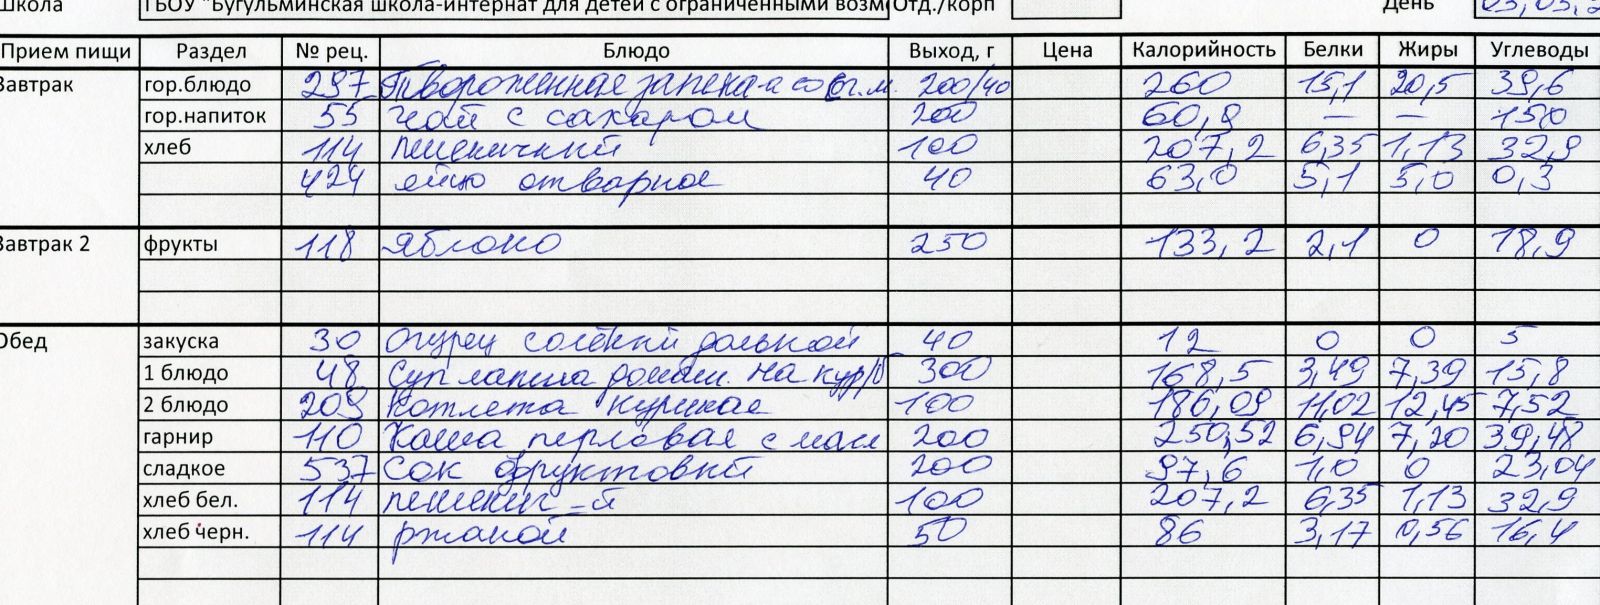 Школа ГБОУ "Бугульминская школа-интернат для детей с ограниченными возм Отд./корп День 03,03,2
Прием пищи Раздел № рец. Блюдо Выход, г Цена Калорийность Белки Жиры Углеводы
Завтрак гор.блюдо 297 Твороженная запека-а со сг.м. 200/40 260 15,1 20,5 39,6
гор.напиток 55 чай с сахаром 200 60,8 — — 15,0
хлеб 114 пшеничный 100 207,2 6,35 1,13 32,9
424 яйцо отварное 40 63,0 5,1 5,0 0,3
Завтрак 2 фрукты 118 яблоко 250 133,2 2,1 0 18,9
Обед закуска 30 Огурец солёный долькой 40 12 0 0 5
1 блюдо 48 Суп лапша домаш. на кур/б 300 168,5 3,49 7,39 15,8
2 блюдо 209 Котлета куриная 100 186,09 11,02 12,45 7,52
гарнир 110 Каша перловая с масл 200 250,52 6,94 7,20 39,48
сладкое 537 Сок фруктовый 200 97,6 1,0 0 23,04
хлеб бел. 114 пшенич-й 100 207,2 6,35 1,13 32,9
хлеб черн. 114 ржаной 50 86 3,17 0,56 16,4